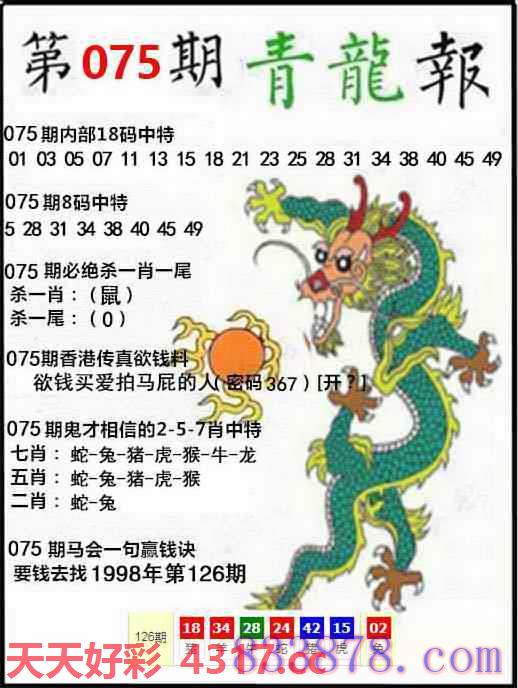 第075期 青龍報
075期内部18码中特
01 03 05 07 11 13 15 18 21 23 25 28 31 34 38 40 45 49
075期8码中特
5 28 31 34 38 40 45 49
075 期必绝杀一肖一尾
杀一肖：(鼠)
杀一尾：(0)
075期香港传真欲钱料
欲钱买爱拍马屁的人(密码367)[开?]
075期鬼才相信的2-5-7肖中特
七肖：蛇-兔-猪-虎-猴-牛-龙
五肖：蛇-兔-猪-虎-猴
二肖：蛇-兔
075期马会一句赢钱诀
要钱去找1998年第126期
126期 18 34 28 24 42 15 02
猪 羊 牛 蛇 猪 虎 兔
天天好彩 4317.cc